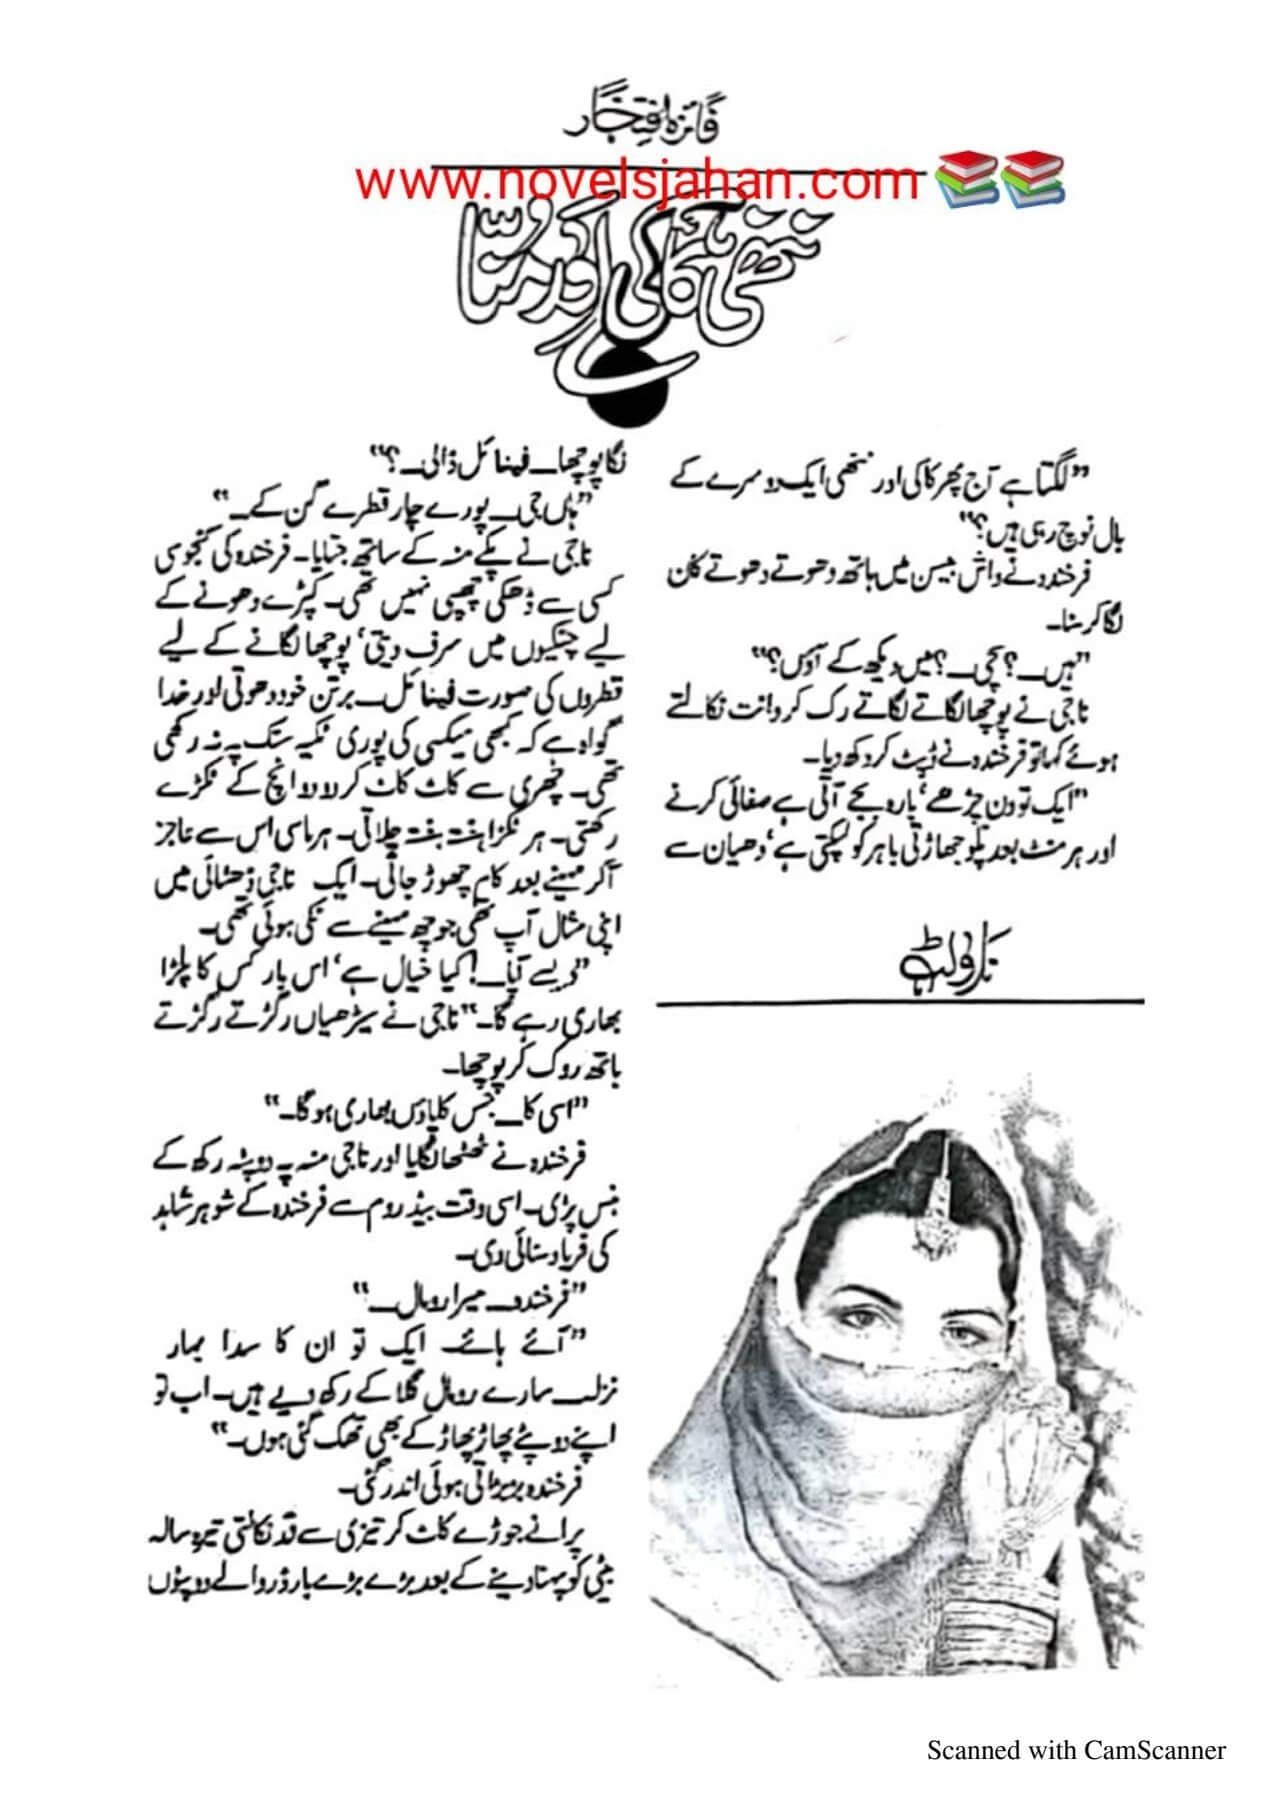 فائزہ افتخار
www.novelsjahan.com
ننھی کاکی اور مُنّا
"لگتا ہے آج پھر کاکی اور ننھی ایک دوسرے کے
بال نوچ رہی ہیں؟"
فرخندہ نے واش بیسن میں ہاتھ دھوتے دھوتے کان
لگا کر سنا۔
"ہیں۔؟ سچی۔؟ میں دیکھ کے آؤں؟"
تاجی نے پوچھا لگاتے لگاتے رک کر دانت نکالتے
ہوئے کہا تو فرخندہ نے ڈپٹ کر رکھ دیا۔
"ایک تو دن چڑھے، بارہ بجے آتی ہے صفائی کرنے
اور ہر منٹ بعد پلو جھاڑتی باہر کو لپکتی ہے، دھیان سے
ناولٹ
لگا پوچھا۔ فینائل ڈالی۔؟"
"ہاں جی۔ پورے چار قطرے گن کے۔"
تاجی نے پکے منہ کے ساتھ جتایا۔ فرخندہ کی کنجوسی
کسی سے ڈھکی چھپی نہیں تھی۔ کپڑے دھونے کے
لیے چٹکیوں میں سرف دیتی، پوچھا لگانے کے لیے
قطروں کی صورت فینائل۔ برتن خود دھوتی اور خدا
گواہ ہے کہ کبھی میکسی کی پوری ٹکیہ سنک پہ نہ رکھی
تھی۔ چھری سے کاٹ کاٹ کر لالا انچ کے ٹکڑے
رکھتی۔ ہر ٹکڑا ہفتہ ہفتہ چلاتی۔ ہر ماسی اس سے عاجز
آکر مہینے بعد کام چھوڑ جاتی۔ ایک تاجی ڈھٹائی میں
اپنی مثال آپ تھی جو چھ مہینے سے ٹکی ہوئی تھی۔
"ویسے آپا۔! کیا خیال ہے، اس بار کس کا پلڑا
بھاری رہے گا۔" تاجی نے سیڑھیاں رگڑتے رگڑتے
ہاتھ روک کر پوچھا۔
"اسی کا۔ جس کا پاؤں بھاری ہو گا۔"
فرخندہ نے ٹھٹھا لگایا اور تاجی منہ پہ دوپٹہ رکھ کے
ہنس پڑی۔ اسی وقت بیڈ روم سے فرخندہ کے شوہر شاہد
کی فریاد سنائی دی۔
"فرخندہ۔ میرا رومال۔"
"آئے ہائے۔ ایک تو ان کا سدا بہار
نزلہ۔ سارے رومال گلا کے رکھ دیے ہیں۔ اب تو
اپنے دوپٹے پھاڑ پھاڑ کے بھی تھک گئی ہوں۔"
فرخندہ بڑبڑاتی ہوئی اندر گئی۔
پرانے جوڑے کاٹ کر تیزی سے قد نکالتی تیرہ سالہ
بیٹی کو پہنا دینے کے بعد بڑے بڑے بارڈر والے دوپٹوں
Scanned with CamScanner